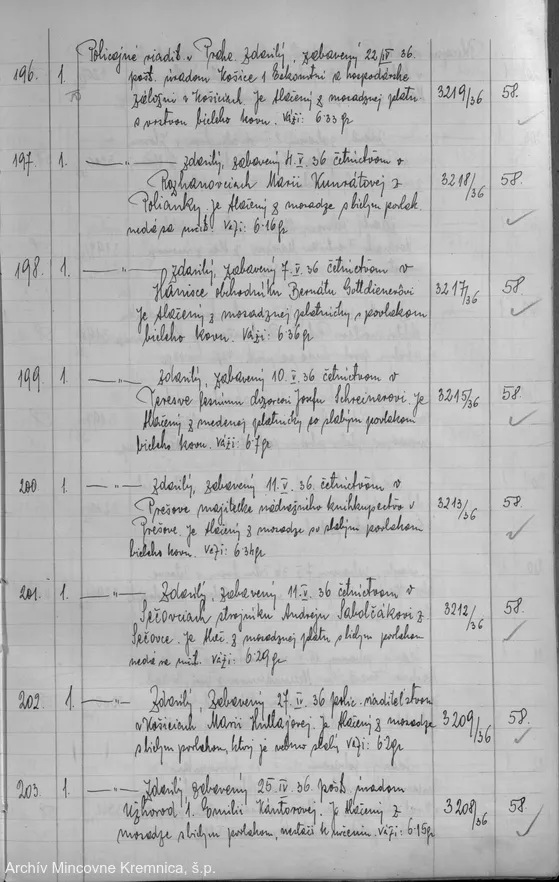 Policajné riadit. v Praha. Zdarilý, zabavený 22/IV 36.
196. 1. pošt. úradom Košice 1 Exkomtní a hospodárske
záložni v Košiciach. Je tlačený z mosadznej platni 3219/36 58.
s vrstvou bieleho kovu. Váži: 6·33 gr
197. 1. —„— Zdarilý, zabavený 4.V. 36 četníctvom v
Rozhanovciach Marii Kunrátovej z 3218/36 58.
Polianky. Je tlačený z mosadze s bielym povlak.
nedá sa určiť. Váži: 6·16 gr
198. 1. —„— Zdarilý, zabavený 7.V. 36 četníctvom v
obchodníku Bernátu Gottdienerovi 3217/36 58
Je tlačený z mosadznej platničky s povlakom
bieleho kovu. Váži: 6·36 gr
199. 1. —„— Zdarilý, zabavený 10.V. 36 četníctvom v
Teresve lesnímu dozorcovi Jozefu Schreinerovi. Je 3215/36 58.
tlačený z medenej platničky so slabým povlakom
bieleho kovu. Váži: 6·7 gr
200 1. —„— Zdarilý, zabavený 11.V. 36. četníctvom v
Prešove majiteľke nádražného kníhkupectva v 3213/36 58.
Prešove. Je tlačený z mosadze so slabým povlakom
bieleho kovu. Váži: 6·34 gr
201. 1. —„— Zdarilý, zabavený 11.V. 36 četníctvom v
Sečovciach strojníku Andreju Sabolčákovi z 3212/36 58.
Sečovce. Je tlač. z mosadznej platni s bielym povlakom
nedá sa určiť. Váži: 6·29 gr
202. 1. —„— Zdarilý, zabavený 27.IV. 36 polic. riaditeľstvom
v Košiciach Marii . Je tlačený z mosadze 3209/36 58.
s bielym povlakom, ktorý je veľmo slabý Váži: 6·2 gr
203. 1. —„— Zdarilý zabavený 25.IV. 36. pošt. úradom
Užhorod 1. Emilii Kántorovej. Je tlačený z 3208/36 58.
mosadze s bielym povlakom, nestačí k určeniu. Váži: 6·15 gr
Archív Mincovne Kremnica, š.p.